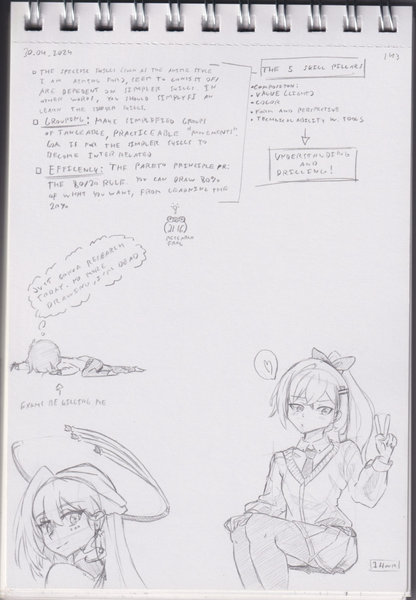 30.04.2024
THE SPECIFIC SKILLS (SUCH AS THE ANIME STYLE
I AM AIMING FOR), SEEM TO CONSIST OF/
ARE DEPENDENT ON SIMPLER SKILLS. IN
OTHER WORDS, YOU SHOULD SIMPLIFY AN
LEARN THE SIMPLER SKILLS
GROUPING: MAKE SIMPLIFIED GROUPS
OF TANGEABLE, PRACTICEABLE "MOVEMENTS"
FOR THE SIMPLER SKILLS TO
BECOME INTER RELATED
EFFICENCY: THE PARETO PRINCIPLE OR:
THE 80/20 RULE. YOU CAN DRAW 80%
OF WHAT YOU WANT, FROM LEARNING THE
20%
THE 5 SKILL PILLARS
COMPOSITION
VALUE (LIGHT)
COLOR
FORM AND PERSPECTIVE
TECHNICAL ABILITY W. TOOLS
UNDERSTANDING
AND
DRILLING!
RESEARCH
FROG
JUST SOME RESEARCH
TODAY. NO MORE
DRAWING, I'M DEAD
EXAMS BE KILLING ME